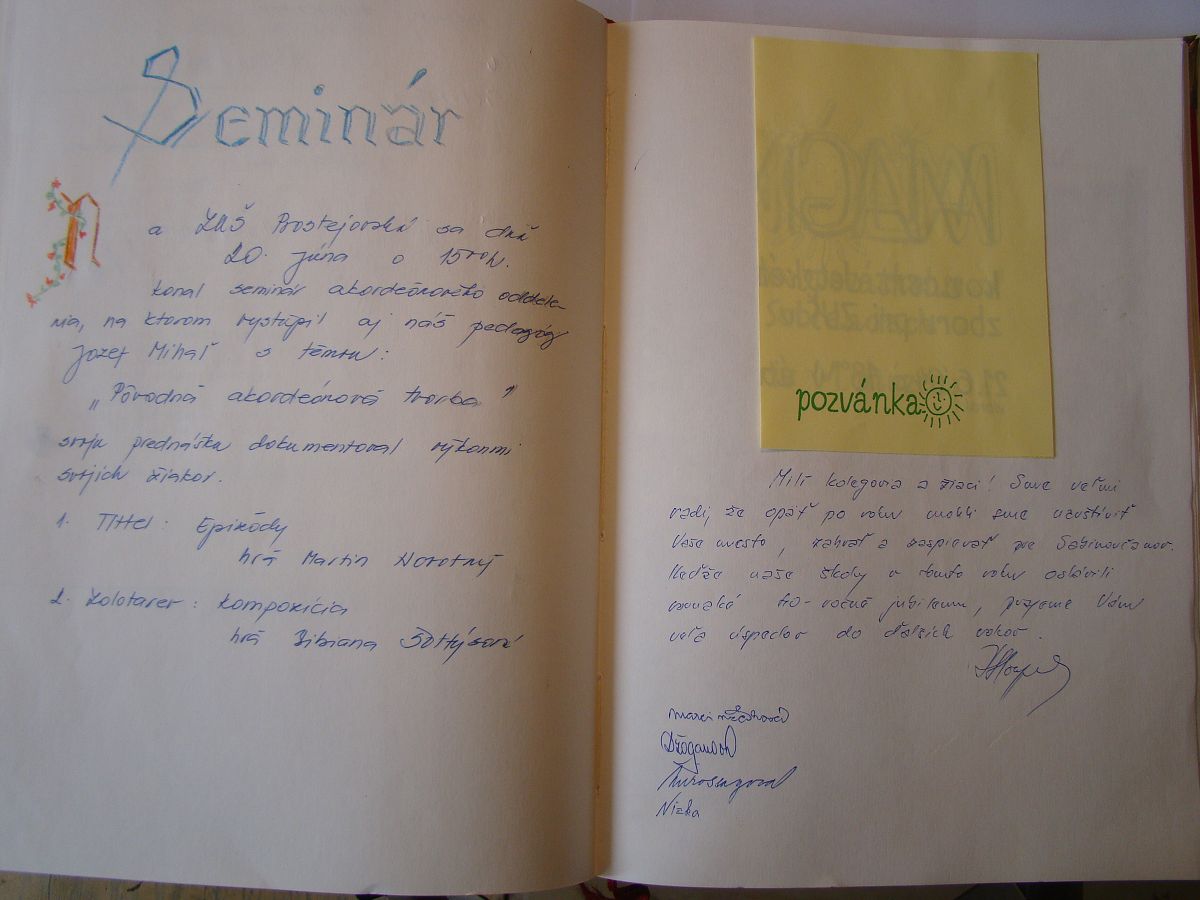 Seminár
Na ZUŠ Prostejovská sa dňa
20. júna o 15ººh.
konal seminár akordeónového oddele-
nia, na ktorom vystúpil aj náš pedagóg
Jozef Mihaľ s témou:
„Pôvodná akordeónová tvorba"
svoju prednášku dokumentoval výkonmi
svojich žiakov.
1. Tittel: Epizódy
hrá Martin Novotný
2. Zolotarev: Kompozícia
hrá Bibiana Šoltýsová
pozvánka
Milí kolegovia a žiaci! Sme veľmi
radi, že opäť po roku mohli sme navštíviť
Vaše mesto, zahrať a zaspievať pre Sabinovčanov.
Keďže naše školy v tomto roku oslávili
rovnaké 40-ročné jubileum, prajeme Vám
veľa úspechov do ďalších rokov.
Nízka